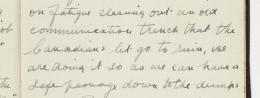 on fatigue cleaning out an old
communication trench that the
Canadians let go to ruin, we
are doing it so as we can have a
safe passage down to the dumps